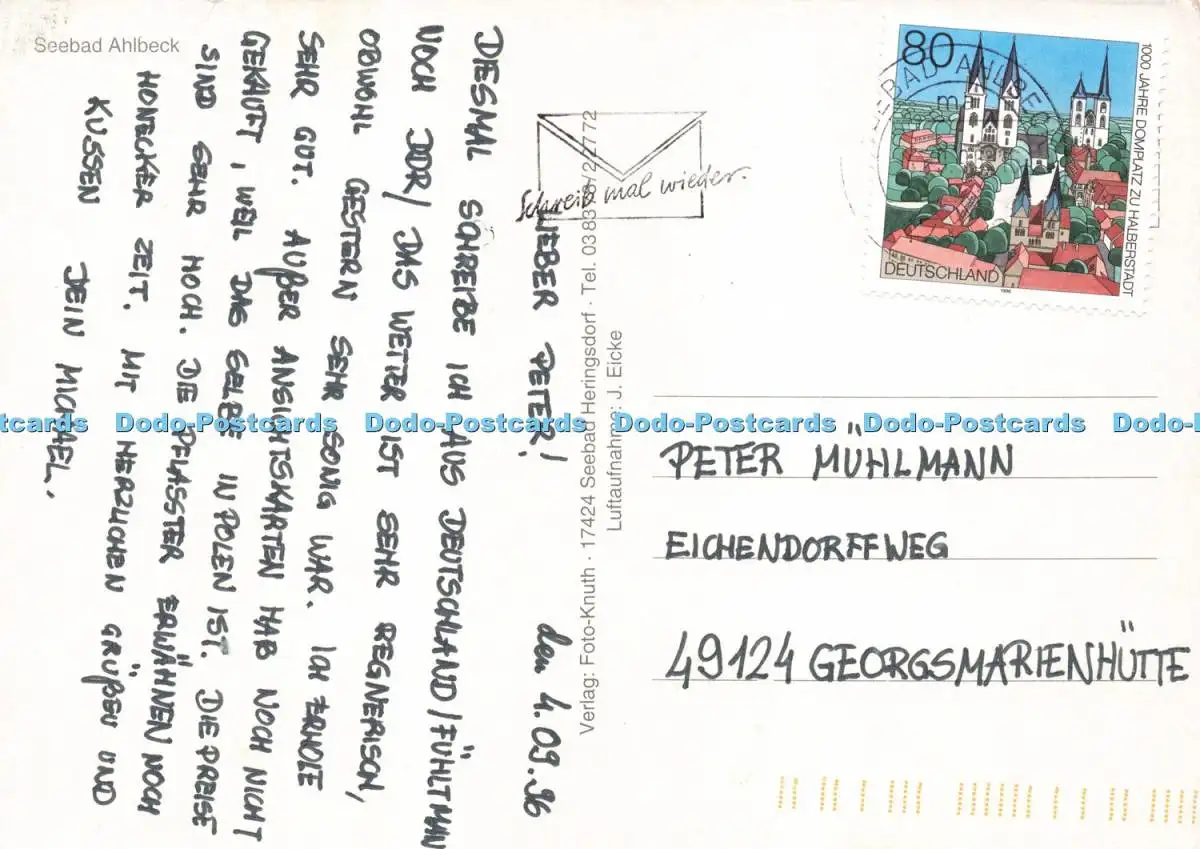 Seebad Ahlbeck
LIEBER PETER! den 4.09.96
DIESMAL SCHREIBE ICH AUS DEUTSCHLAND/FÜHLT MAN
NOCH DDR/ DAS WETTER IST SEHR REGNERISCH,
OBWOHL GESTERN SEHR SONIG WAR. ICH ERHOLE
SEHR GUT. AUßER ANSICHTSKARTEN HAB NOCH NICHT
GEKAUFT, WEIL DAS SELBE IN POLEN IST. DIE PREISE
SIND SEHR HOCH. DIE PFLASSTER ERWÄHNEN NOCH
HONECKER ZEIT. MIT HERZLICHEN GRÜßEN UND
KUSSEN DEIN MICHAEL.
Verlag: Foto-Knuth · 17424 Seebad Heringsdorf · Tel. 038378/22772
Luftaufnahme: J. Eicke
Schreib mal wieder.
SEEBAD AHLBECK
80
1000 JAHRE DOMPLATZ ZU HALBERSTADT
DEUTSCHLAND
1996
PETER MÜHLMANN
EICHENDORFFWEG
49124 GEORGSMARIENHÜTTE
Dodo-Postcards Dodo-Postcards Dodo-Postcards Dodo-Postcards Dodo-Postcards